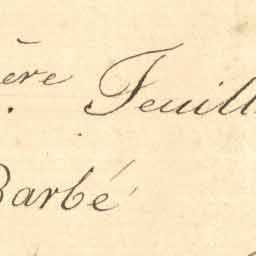 ère Feuill
Barbé